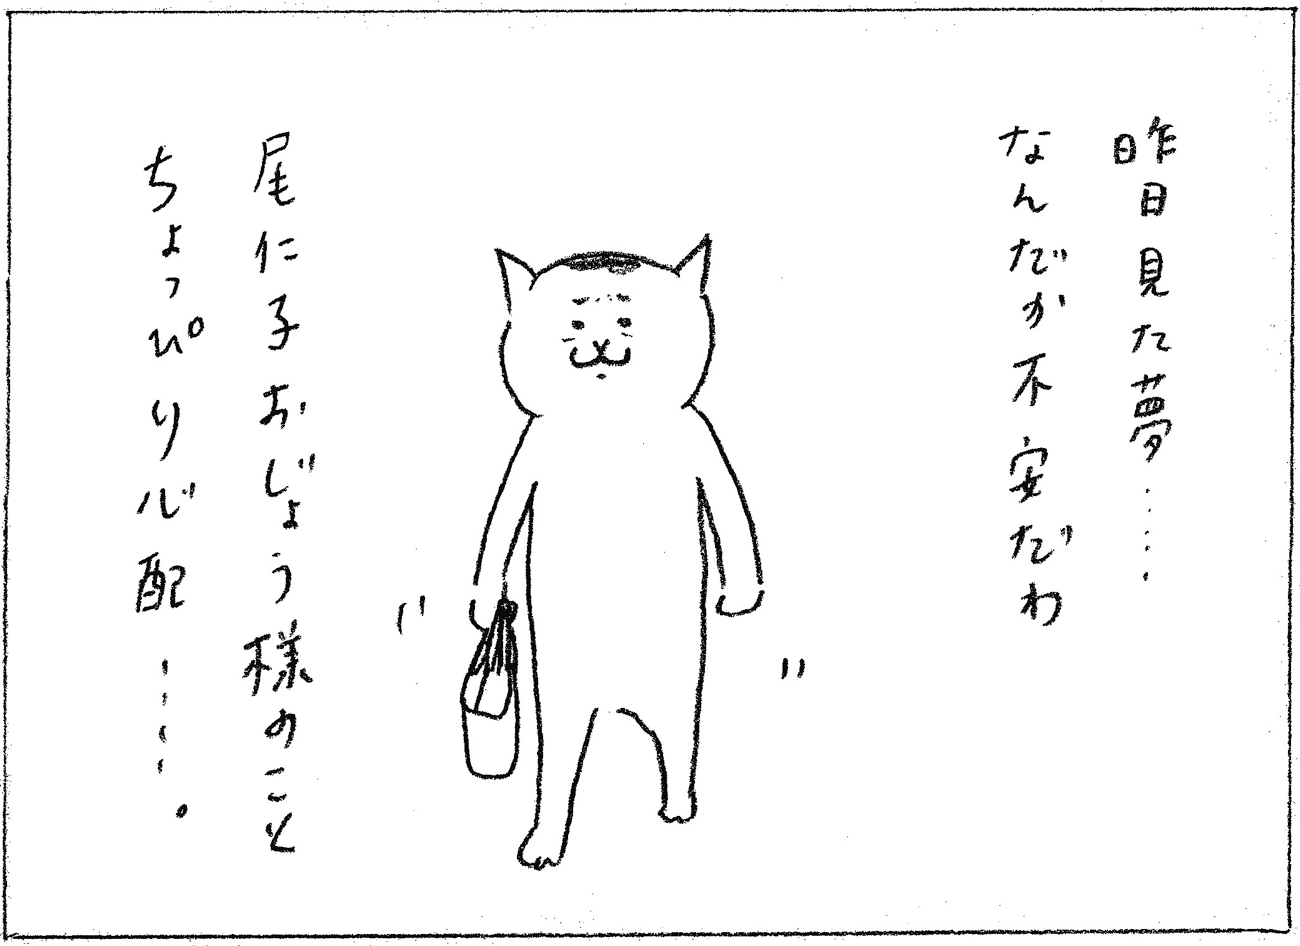 昨日見た夢……
なんだか不安だわ
尾仁子おじょう様のこと
ちょっぴり心配……。